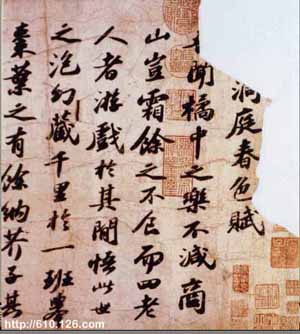 洞庭春色賦
聞橘中之樂不減商
山豈霜餘之不食而四老
人者游戲於其間悟此世
之泡幻藏千里於一班舉
棗葉之有餘納芥子其
http://610.126.com/